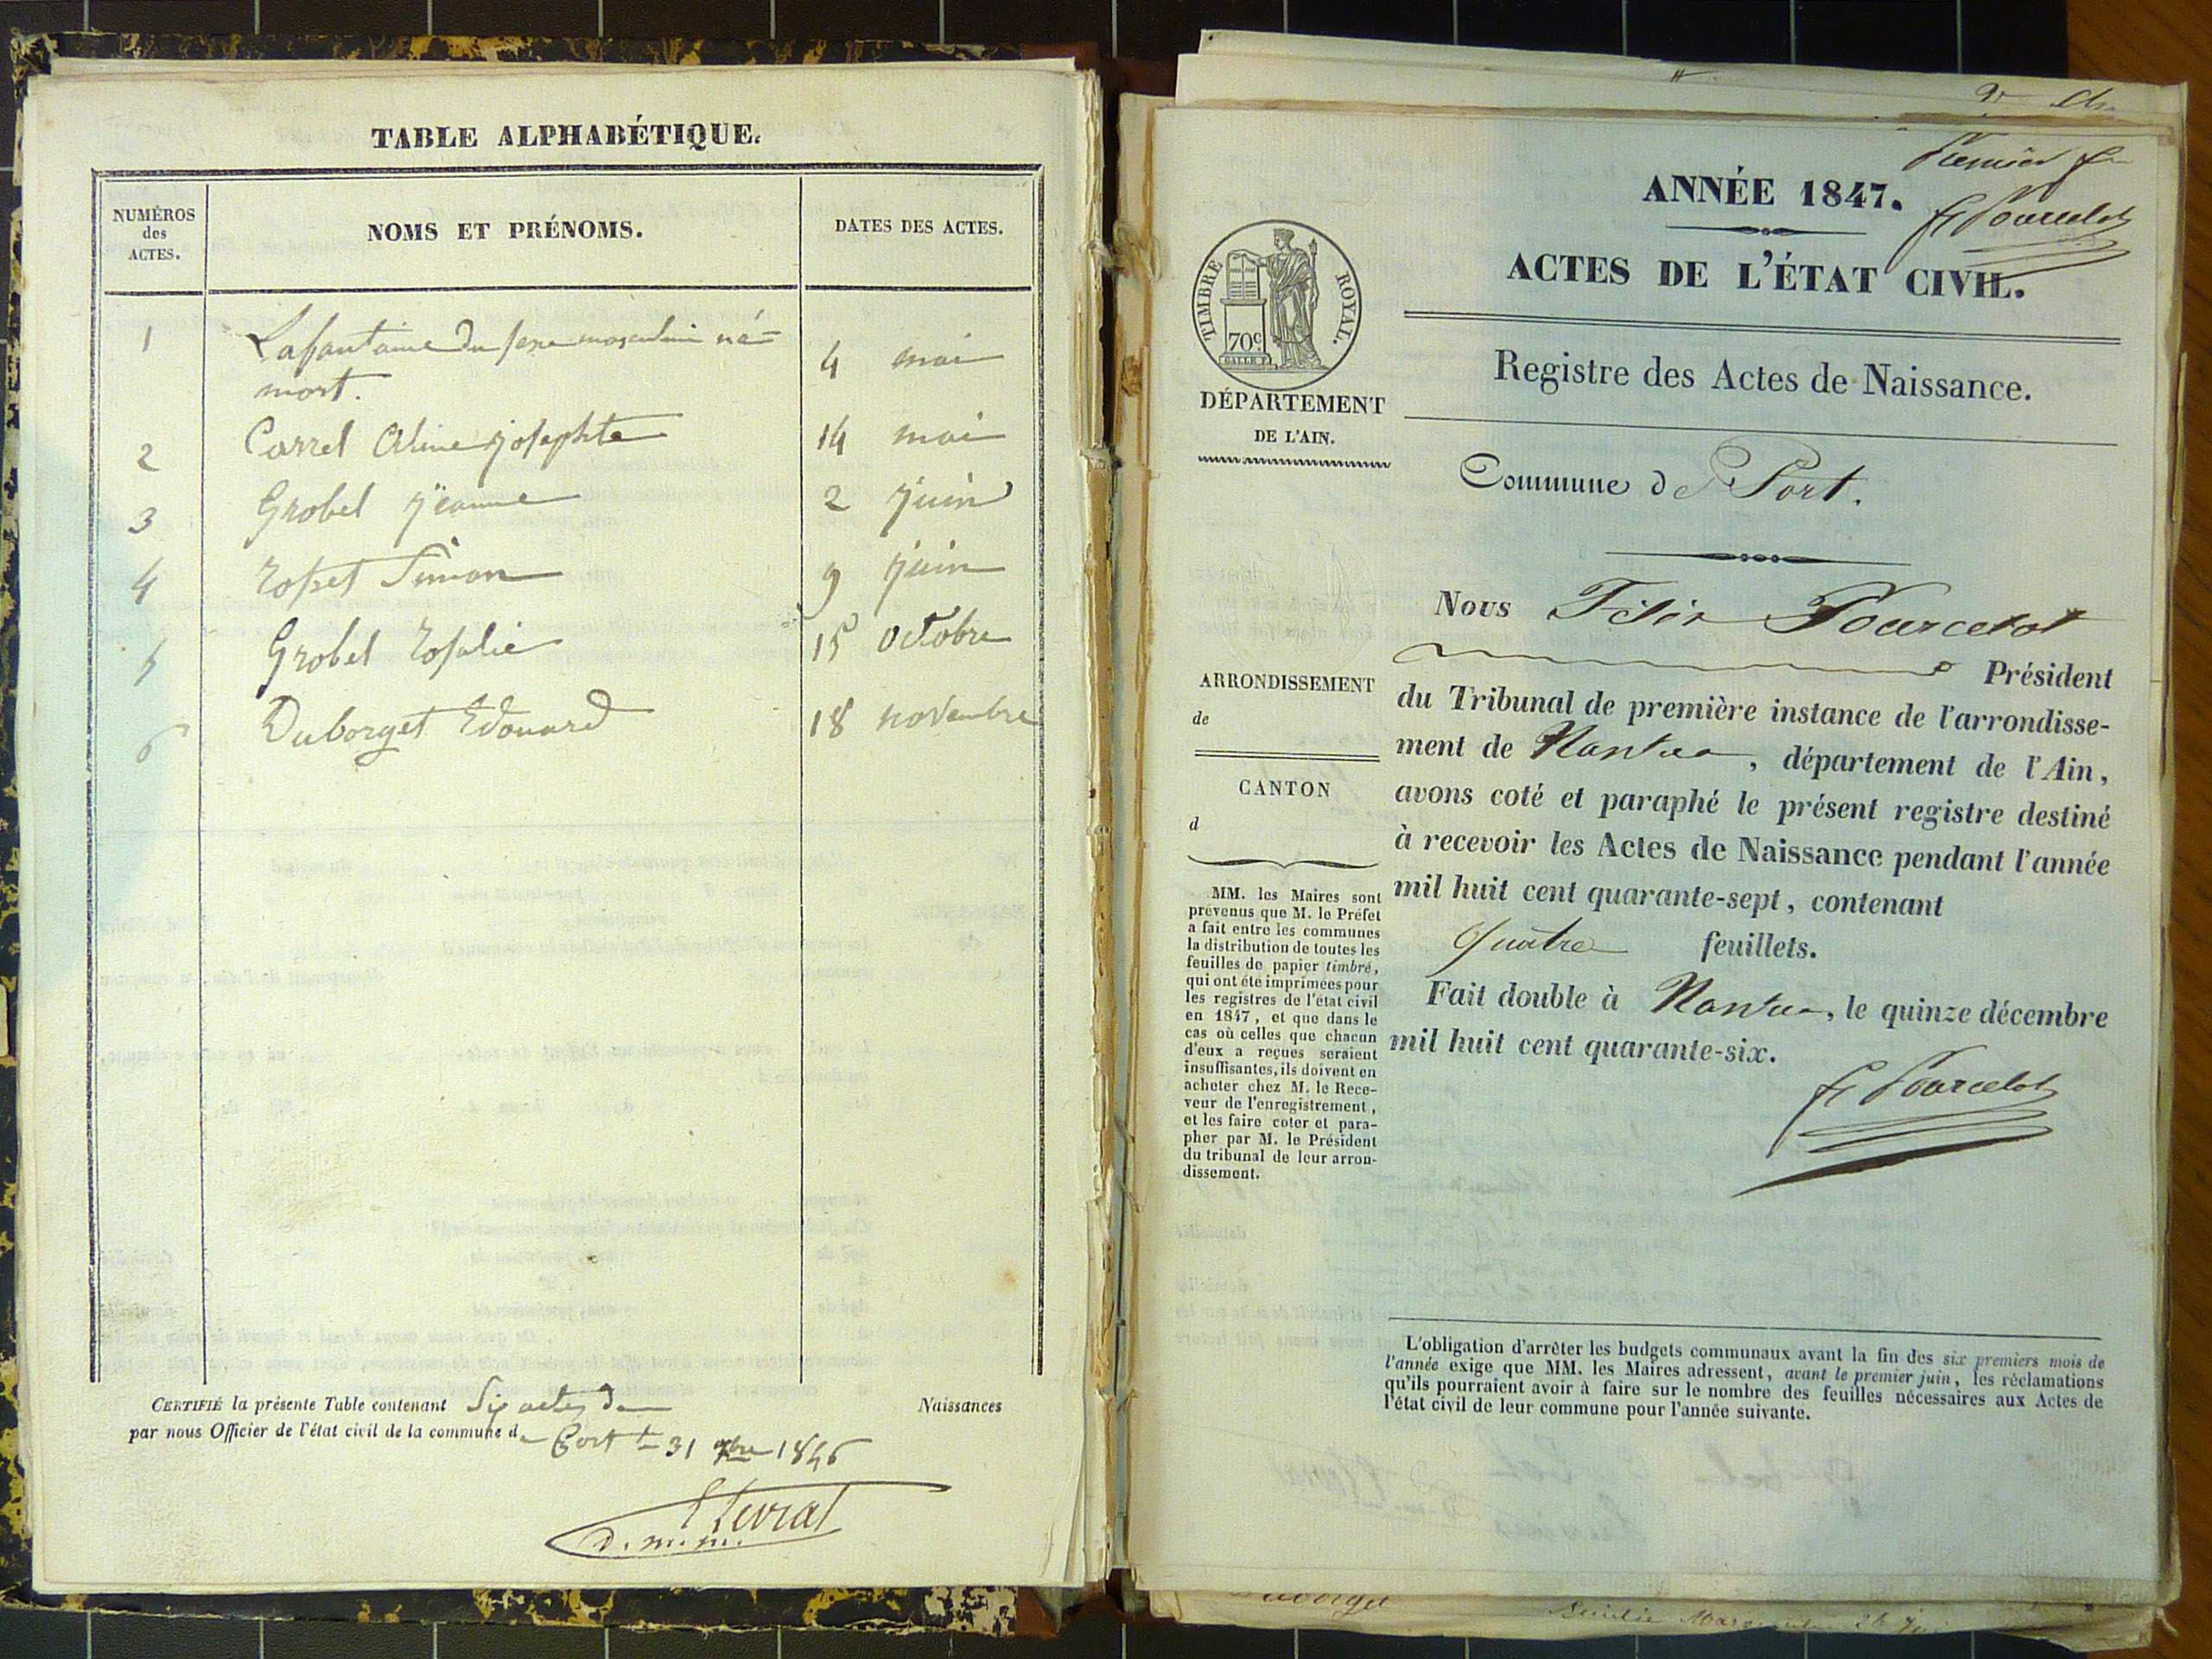 TABLE ALPHABÉTIQUE.
NUMÉROS
des
ACTES.
NOMS ET PRÉNOMS.
DATES DES ACTES.
1 Lafontaine du sexe masculin né-
mort. 4 mai
2 Carrel Aline josephte 14 mai
3 Grobel jeanne 2 juin
4 rosset Simon 9 juin
5 Grobel rosalie 15 octobre
6 Duborget Edouard 18 novembre
CERTIFIÉ la présente Table contenant Six actes de Naissances
par nous Officier de l'état civil de la commune de Port le 31 Xbre 1846
d. m. m.
Premier
F Pourcelot
ANNÉE 1847.
ACTES DE L'ÉTAT CIVIL.
TIMBRE ROYAL.
70c
Registre des Actes de Naissance.
DÉPARTEMENT
DE L'AIN.
Commune de Port.
Nous Félix Pourcelot
Président
du Tribunal de première instance de l'arrondisse-
ment de Nantua, département de l'Ain,
avons coté et paraphé le présent registre destiné
à recevoir les Actes de Naissance pendant l'année
mil huit cent quarante-sept, contenant
Quatre feuillets.
Fait double à Nantua, le quinze décembre
mil huit cent quarante-six.
F Pourcelot
ARRONDISSEMENT
de
CANTON
d
MM. les Maires sont
prévenus que M. le Préfet
a fait entre les communes
la distribution de toutes les
feuilles de papier timbré,
qui ont été imprimées pour
les registres de l'état civil
en 1847, et que dans le
cas où celles que chacun
d'eux a reçues seraient
insuffisantes, ils doivent en
acheter chez M. le Rece-
veur de l'enregistrement,
et les faire coter et para-
pher par M. le Président
du tribunal de leur arron-
dissement.
L'obligation d'arrêter les budgets communaux avant la fin des six premiers mois de
l'année exige que MM. les Maires adressent, avant le premier juin, les réclamations
qu'ils pourraient avoir à faire sur le nombre des feuilles nécessaires aux Actes de
l'état civil de leur commune pour l'année suivante.